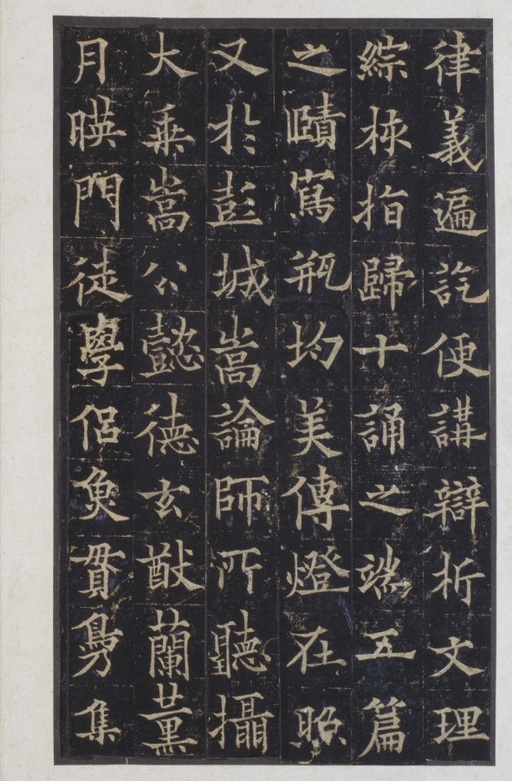 律義遍訖便講辯析文理
綜核指歸十誦之端五篇
之賾寫瓶均美傳燈在照
又於彭城嵩論師所聽攝
大乘嵩公懿德玄猷蘭薰
月暎門徒學侶魚貫鳧集